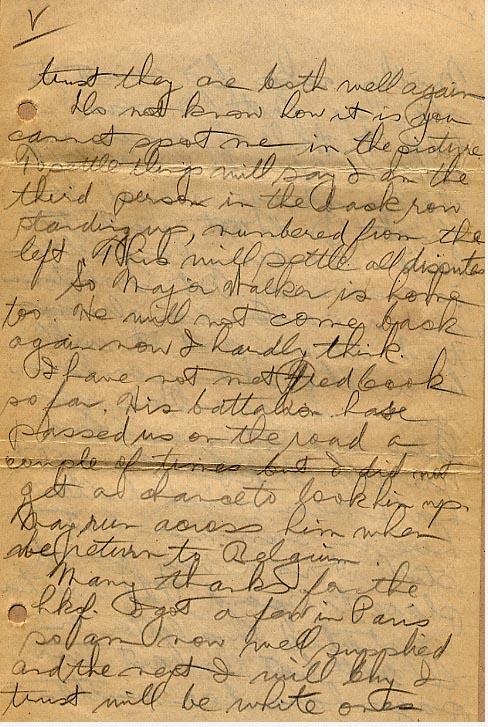 V
trust they are both well again
Do not know how it is you
cannot spot me in the picture.
To settle things will say I am the
third person in the back row
standing up, numbered from the
left. This will settle all disputes
So Major Walker is home
too. He will not come back
again now I hardly think.
I have not met Fred Cook
so far. His battalion have
passed us on the road a
couple of times but I did not
get a chance to look him up.
May run across him when
we return to Belgium
Many thanks for the
hkf. I got a few in Paris
so am now well supplied
and the next I will buy I
trust will be white ones